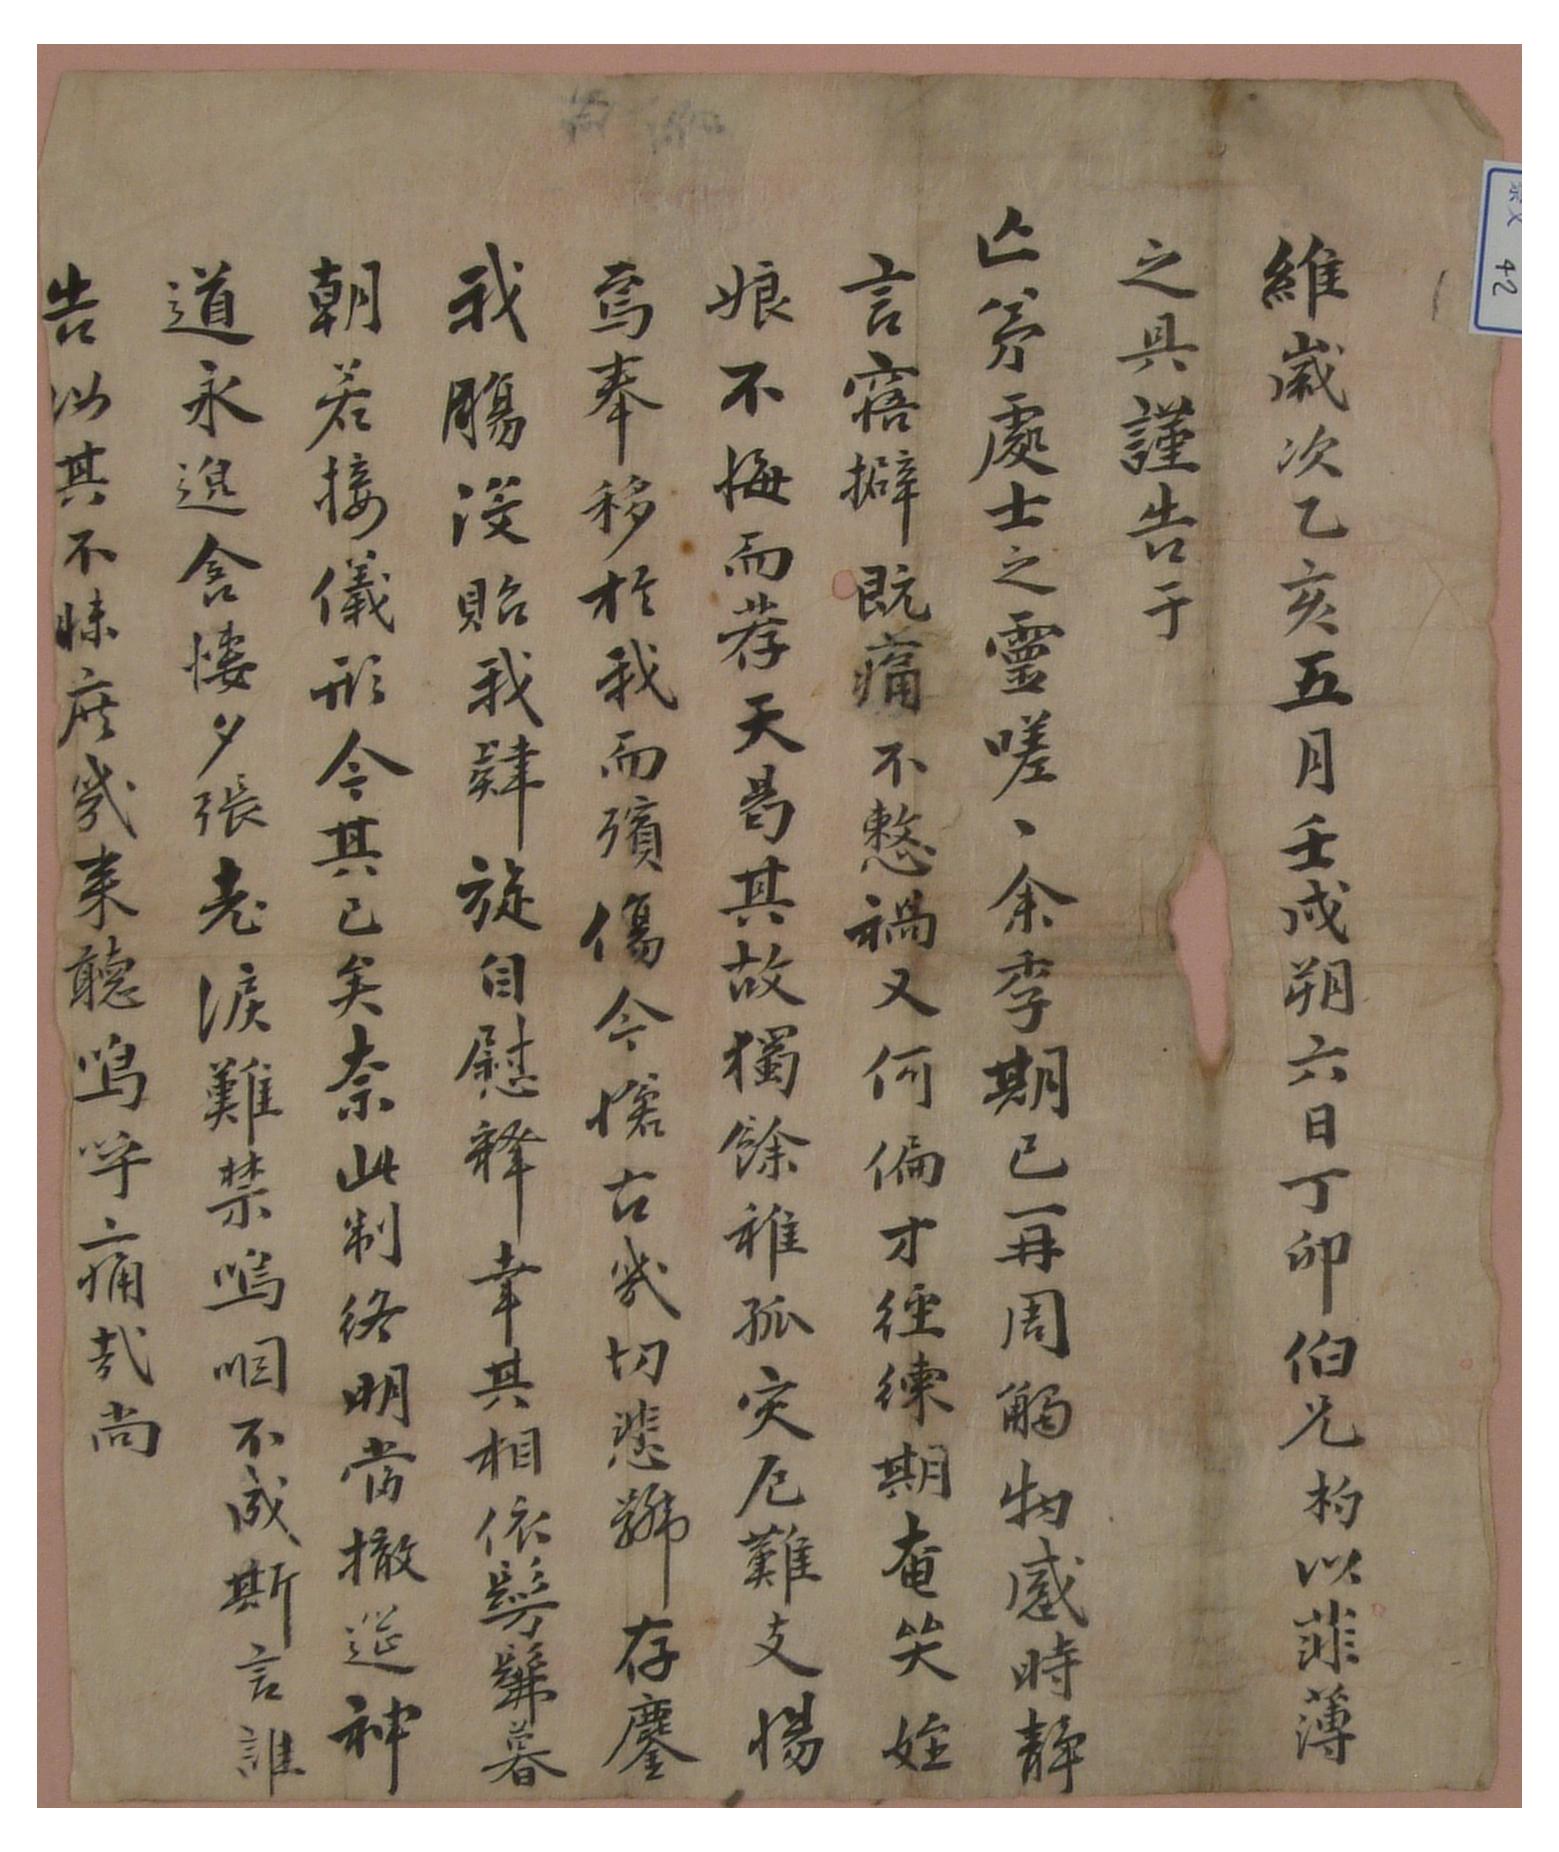 維歲次乙亥五月壬戌朔六日丁卯伯兄杓以菲薄
之具謹告于
亡弟處士之靈嗟、余季期已再周觸物感時靜
言寤擗旣痛不憗禍又何偏才經練期奄哭姪
娘不悔而荐天曷其故獨餘稚孤灾厄難支惕
焉奉移於我而殯傷今愴古幾切悲號存鏖
我膓沒貽我肆旋自慰釋幸其相依髣髴暮
朝若接儀形今其已矣奈此制終明當撤筵神
道永邈含悽夕張老淚難禁嗚咽不成斯言誰
告以其不昧庶幾來聽嗚呼痛哉尚
祭文 42